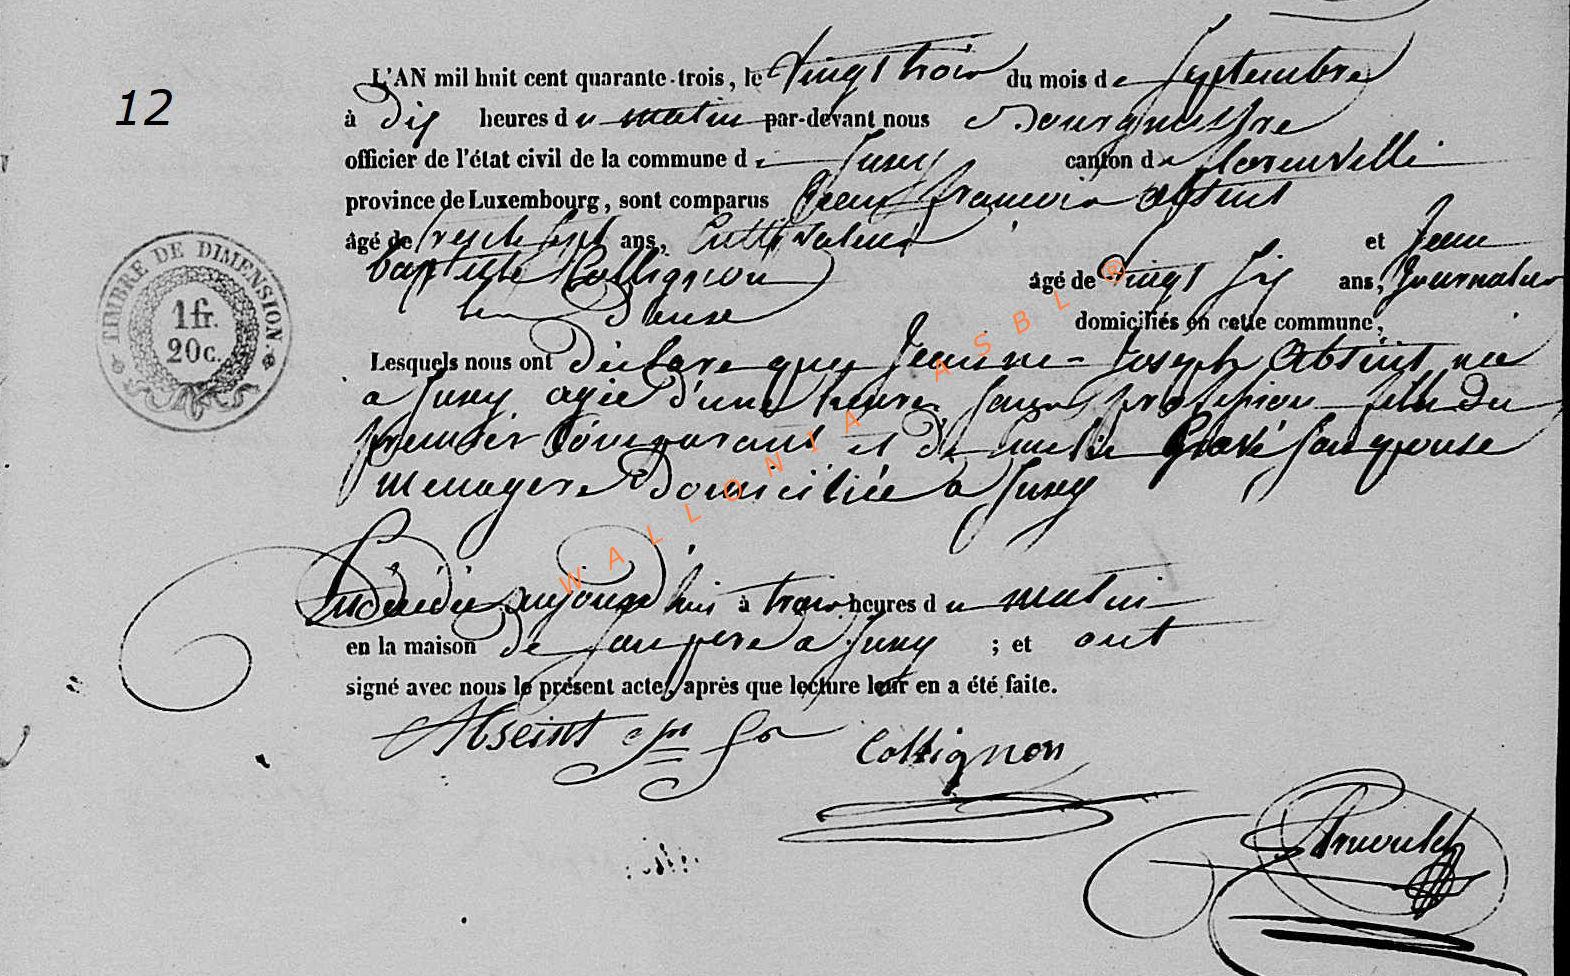 12
L'AN mil huit cent quarante-trois, le vingt trois du mois de Septembre
à dix heures du matin par-devant nous Bourguestre
officier de l'état civil de la commune de Jusey canton de florenville
province de Luxembourg, sont comparus Jean francois Absint
âgé de trente sept ans, Cultivateur et Jean
baptiste Collignon âgé de vingt six ans, Journalier
domiciliés en cette commune,
Lesquels nous ont déclaré que Jeanne Joseph Absint née
a Jusey agée d'une heure sans profession fille du
premier Comparant et de son epouse
menagere domiciliée a Jusey
décédée aujourd'hui à trois heures du matin
en la maison de son pere a Jusey ; et ont
signé avec nous le présent acte, après que lecture leur en a été faite.
Abseint Collignon
TIMBRE DE DIMENSION.
1fr.
20c.
WALLONIA ASBL ®